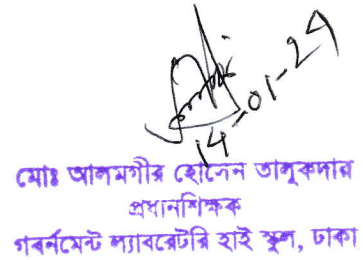 14-01-24
মোঃ আলমগীর হোসেন তালুকদার
প্রধানশিক্ষক
গবর্নমেন্ট ল্যাবরেটরি হাই স্কুল, ঢাকা